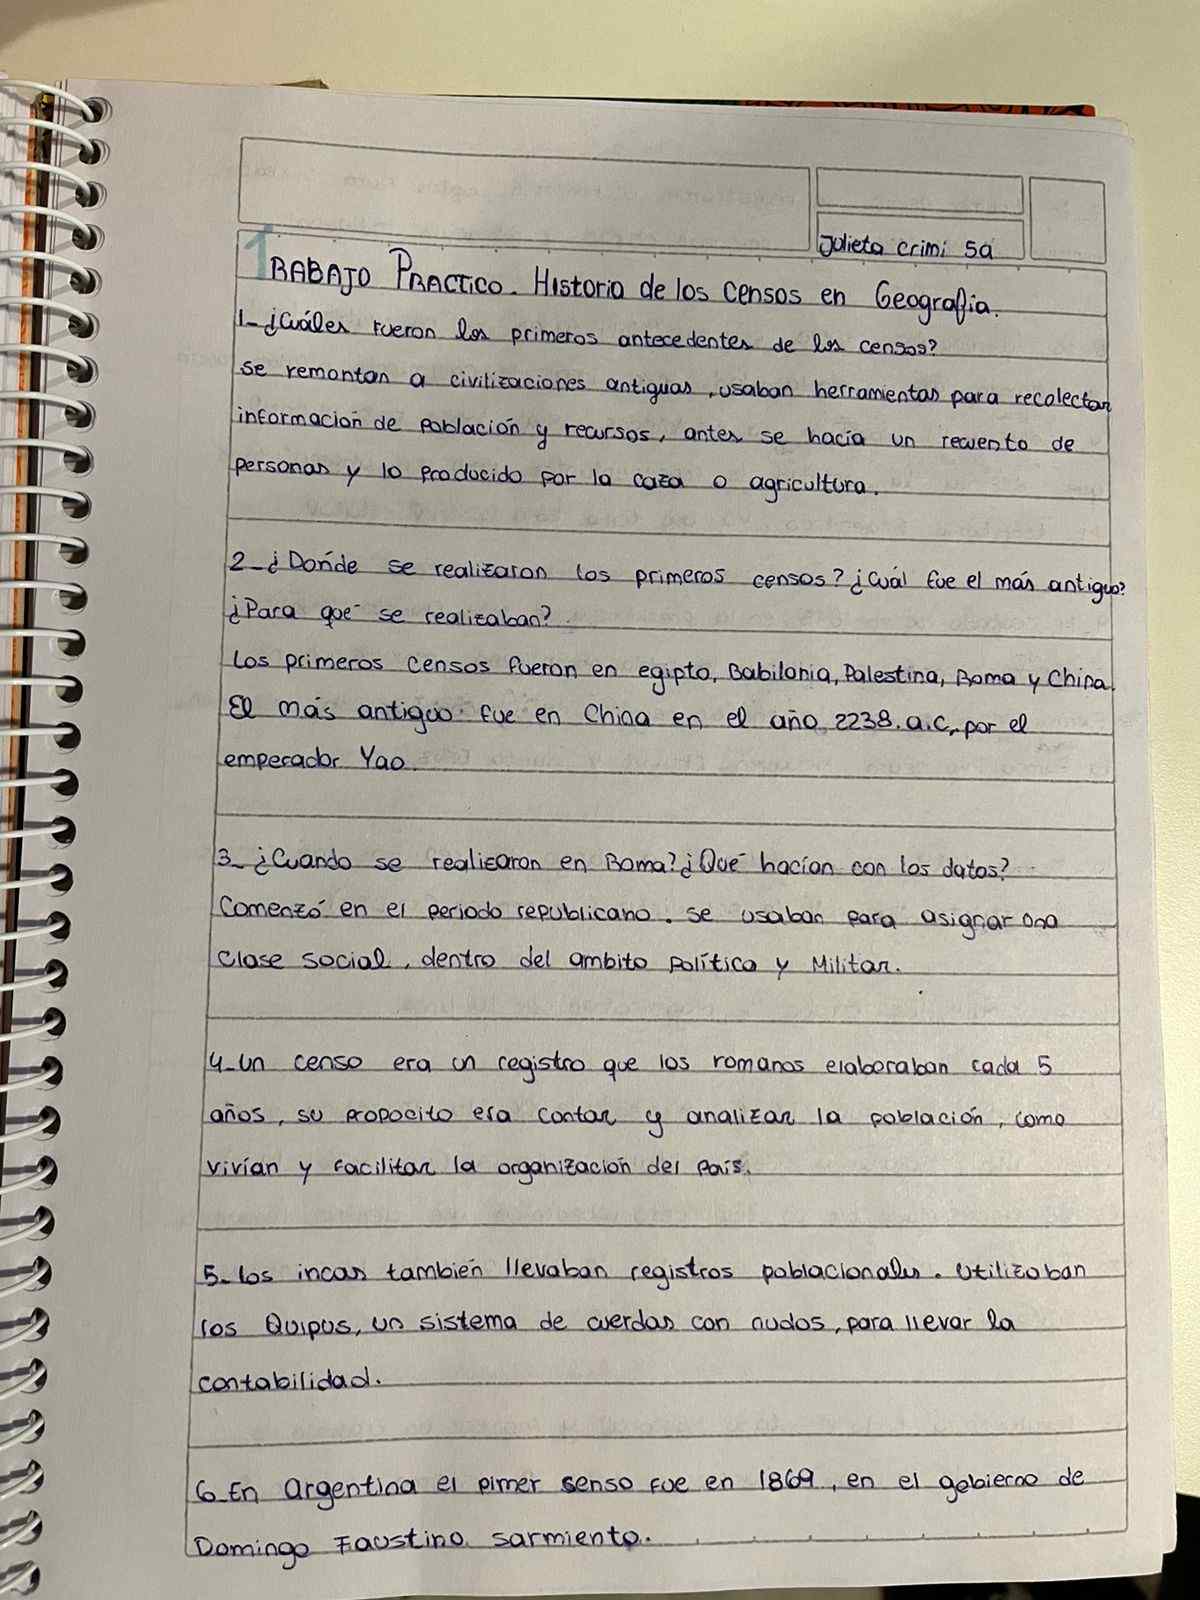 Julieta Crimi 5a
TRABAJO PRACTICO. Historia de los censos en Geografia.
1_ ¿Cuáles fueron los primeros antecedentes de los censos?
se remontan a civilizaciones antiguas, usaban herramientas para recolectar
información de población y recursos, antes se hacía un recuento de
personas y lo producido por la caza o agricultura.
2_ ¿Dónde se realizaron los primeros censos? ¿Cuál fue el más antiguo?
¿Para qué se realizaban?
Los primeros censos fueron en egipto, Babilonia, Palestina, Roma y China.
El más antiguo fue en China en el año 2238. a.C, por el
emperador Yao.
3_ ¿Cuando se realizaron en Roma? ¿Qué hacían con los datos?
Comenzó en el periodo republicano. se usaban para asignar una
clase social, dentro del ambito política y Militar.
4_ Un censo era un registro que los romanos elaboraban cada 5
años, su propocito era contar y analizar la población, como
vivían y facilitar la organización del país.
5_ los incas también llevaban registros poblacionales. Utilizaban
los Quipus, un sistema de cuerdas con nudos, para llevar la
contabilidad.
6_ En argentina el pimer senso fue en 1869, en el gobierno de
Domingo Faustino sarmiento.